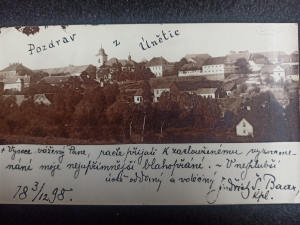 Pozdrav z Únětic
Vysoce vážený Pane, račte přijati k
náné moje nejupřímnější blahopřání. – V nejhlubší
úctě oddaný a Jindřich Š. Baar,
18 3/12 98. kpl.